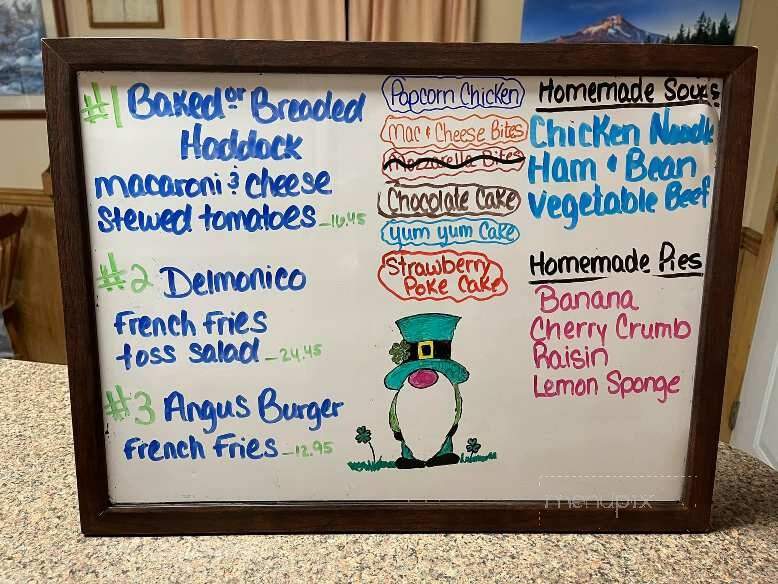 #1 Baked or Breaded
Haddock
macaroni & cheese
stewed tomatoes - 16.45
#2 Delmonico
French fries
toss salad - 24.45
#3 Angus Burger
French Fries - 12.95
Popcorn Chicken
Mac & Cheese Bites
Mozzarella Bites
Chocolate Cake
yum yum Cake
Strawberry
Poke Cake
Homemade Soups
Chicken Noodle
Ham & Bean
Vegetable Beef
Homemade Pies
Banana
Cherry Crumb
Raisin
Lemon Sponge
menupix